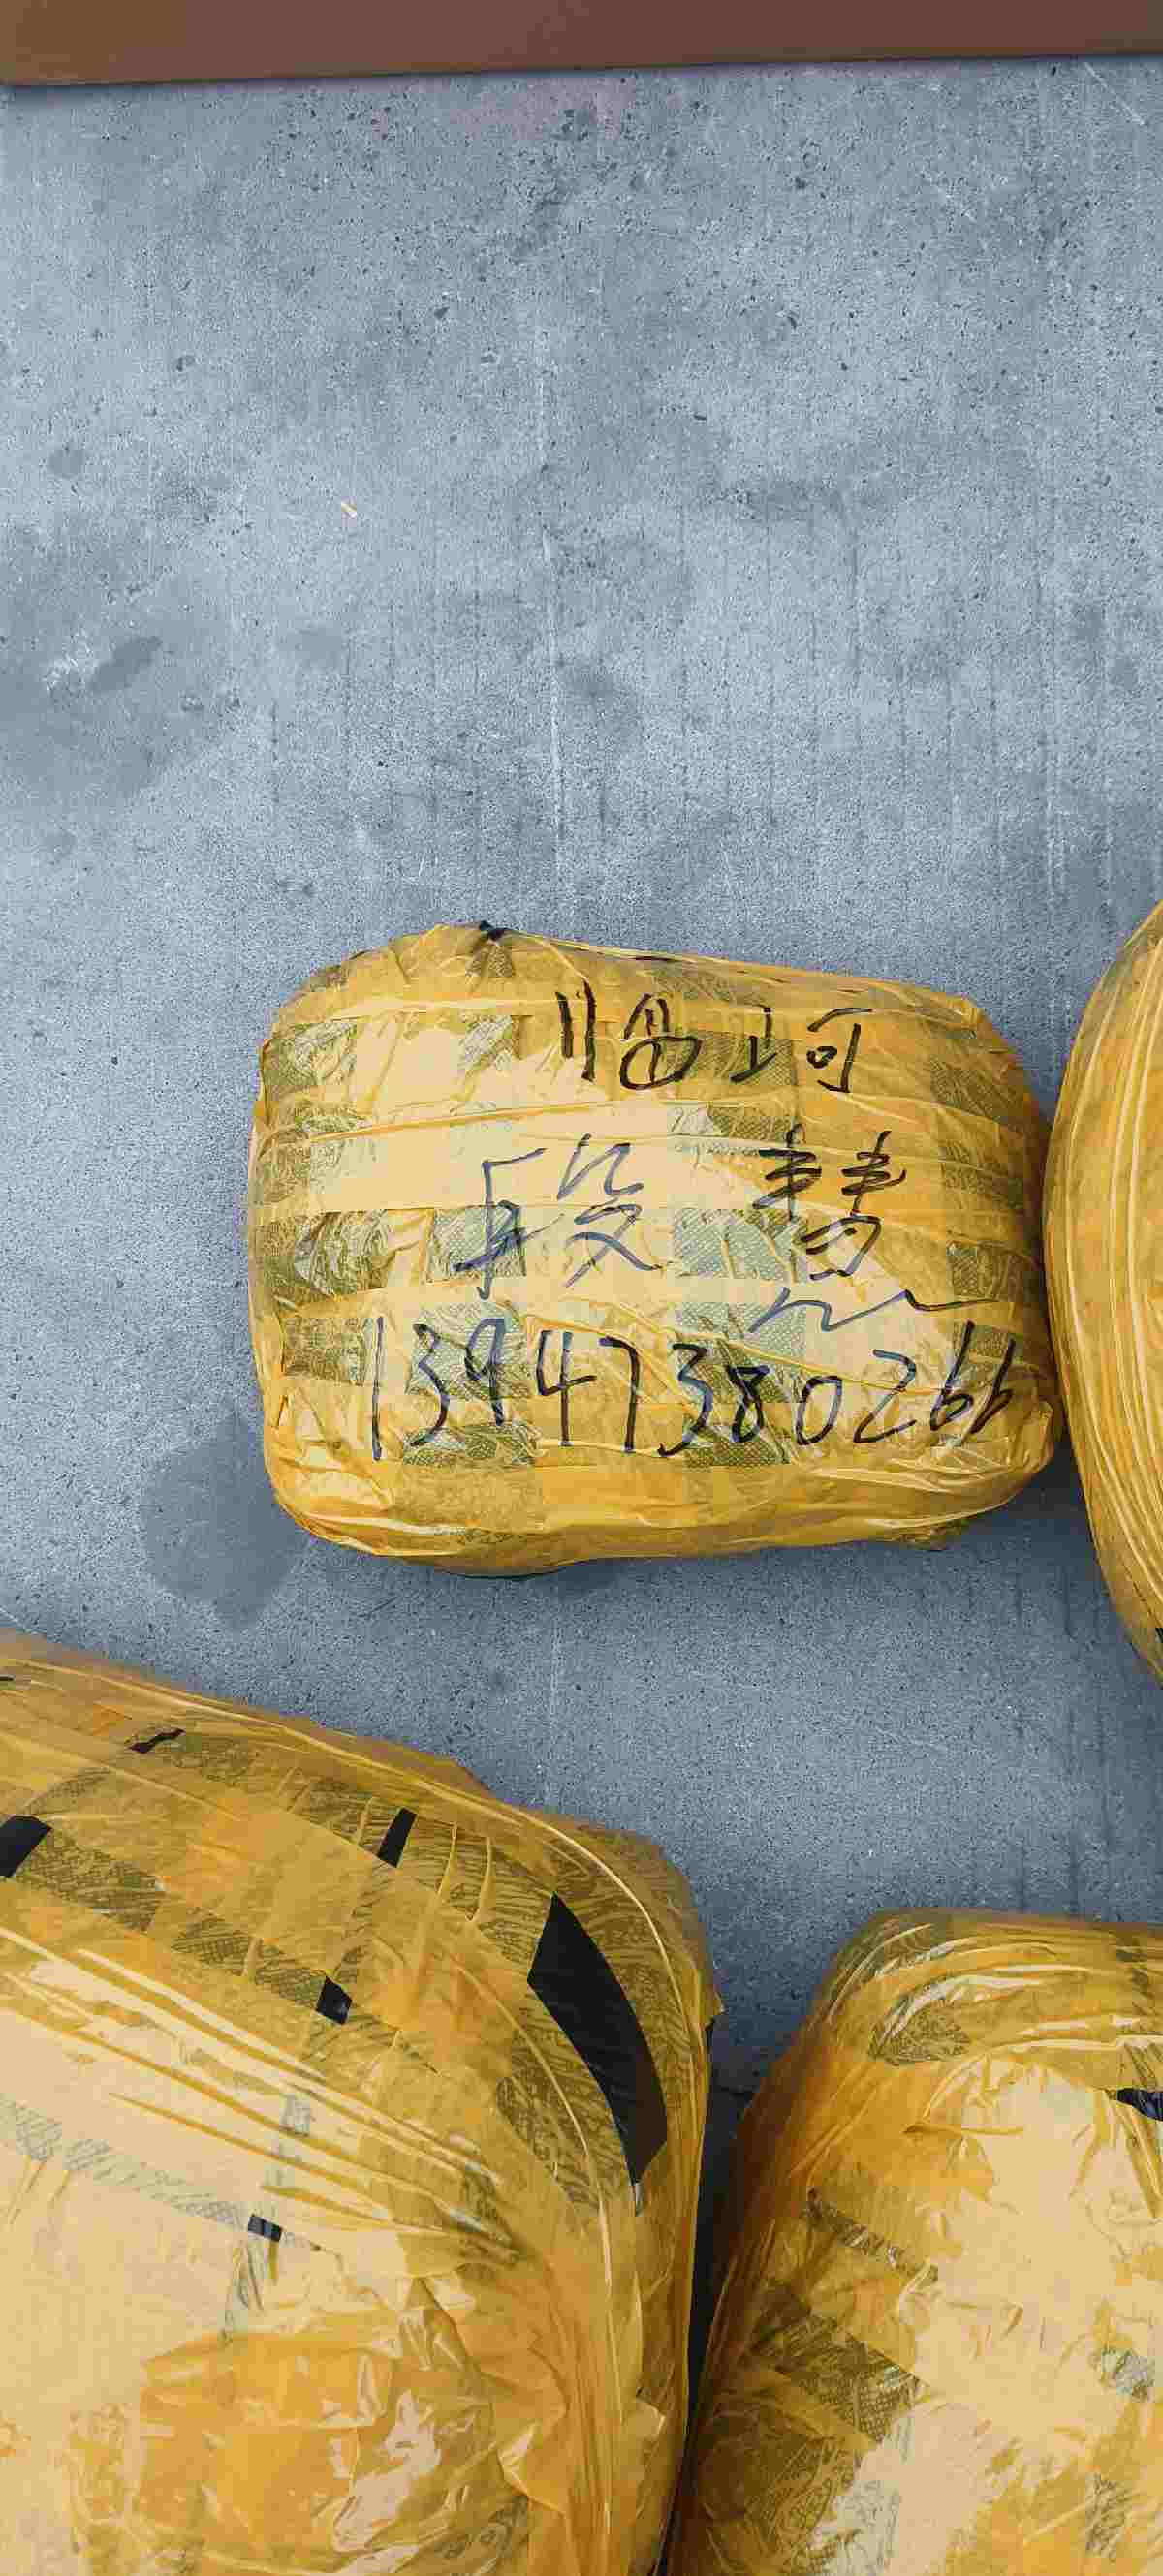 临河
段慧
13947380266